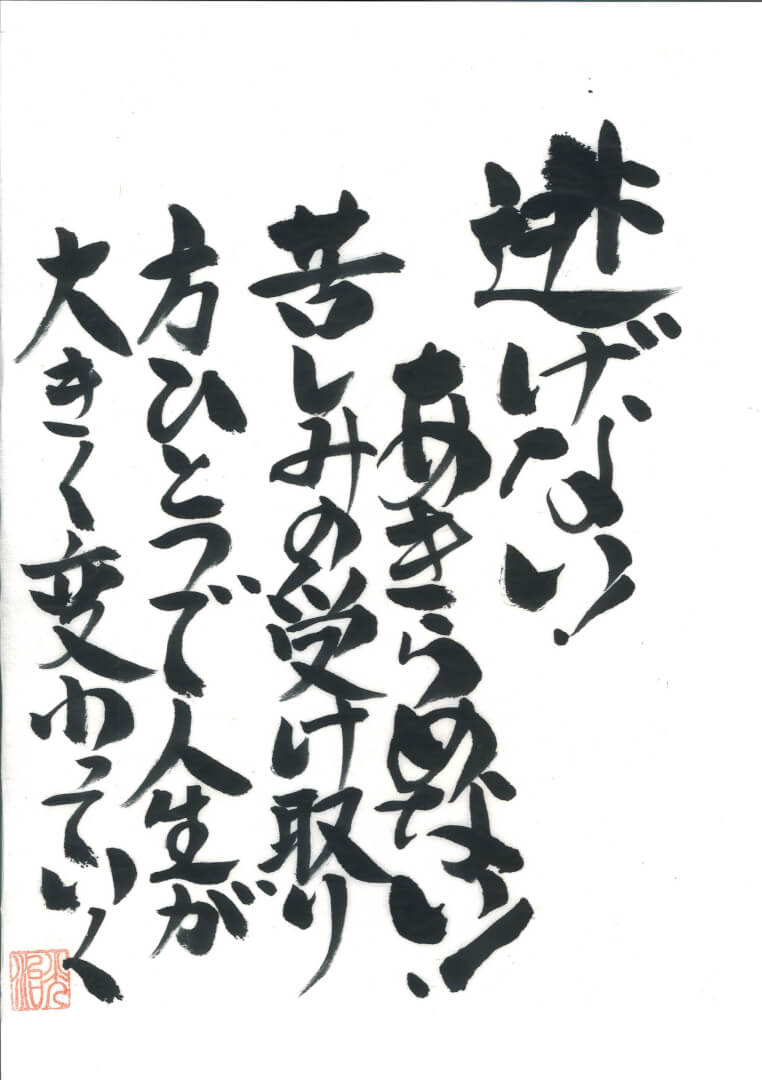 逃げない!
あきらめない!
苦しみの受け取り
方ひとつで人生が
大きく変わっていく